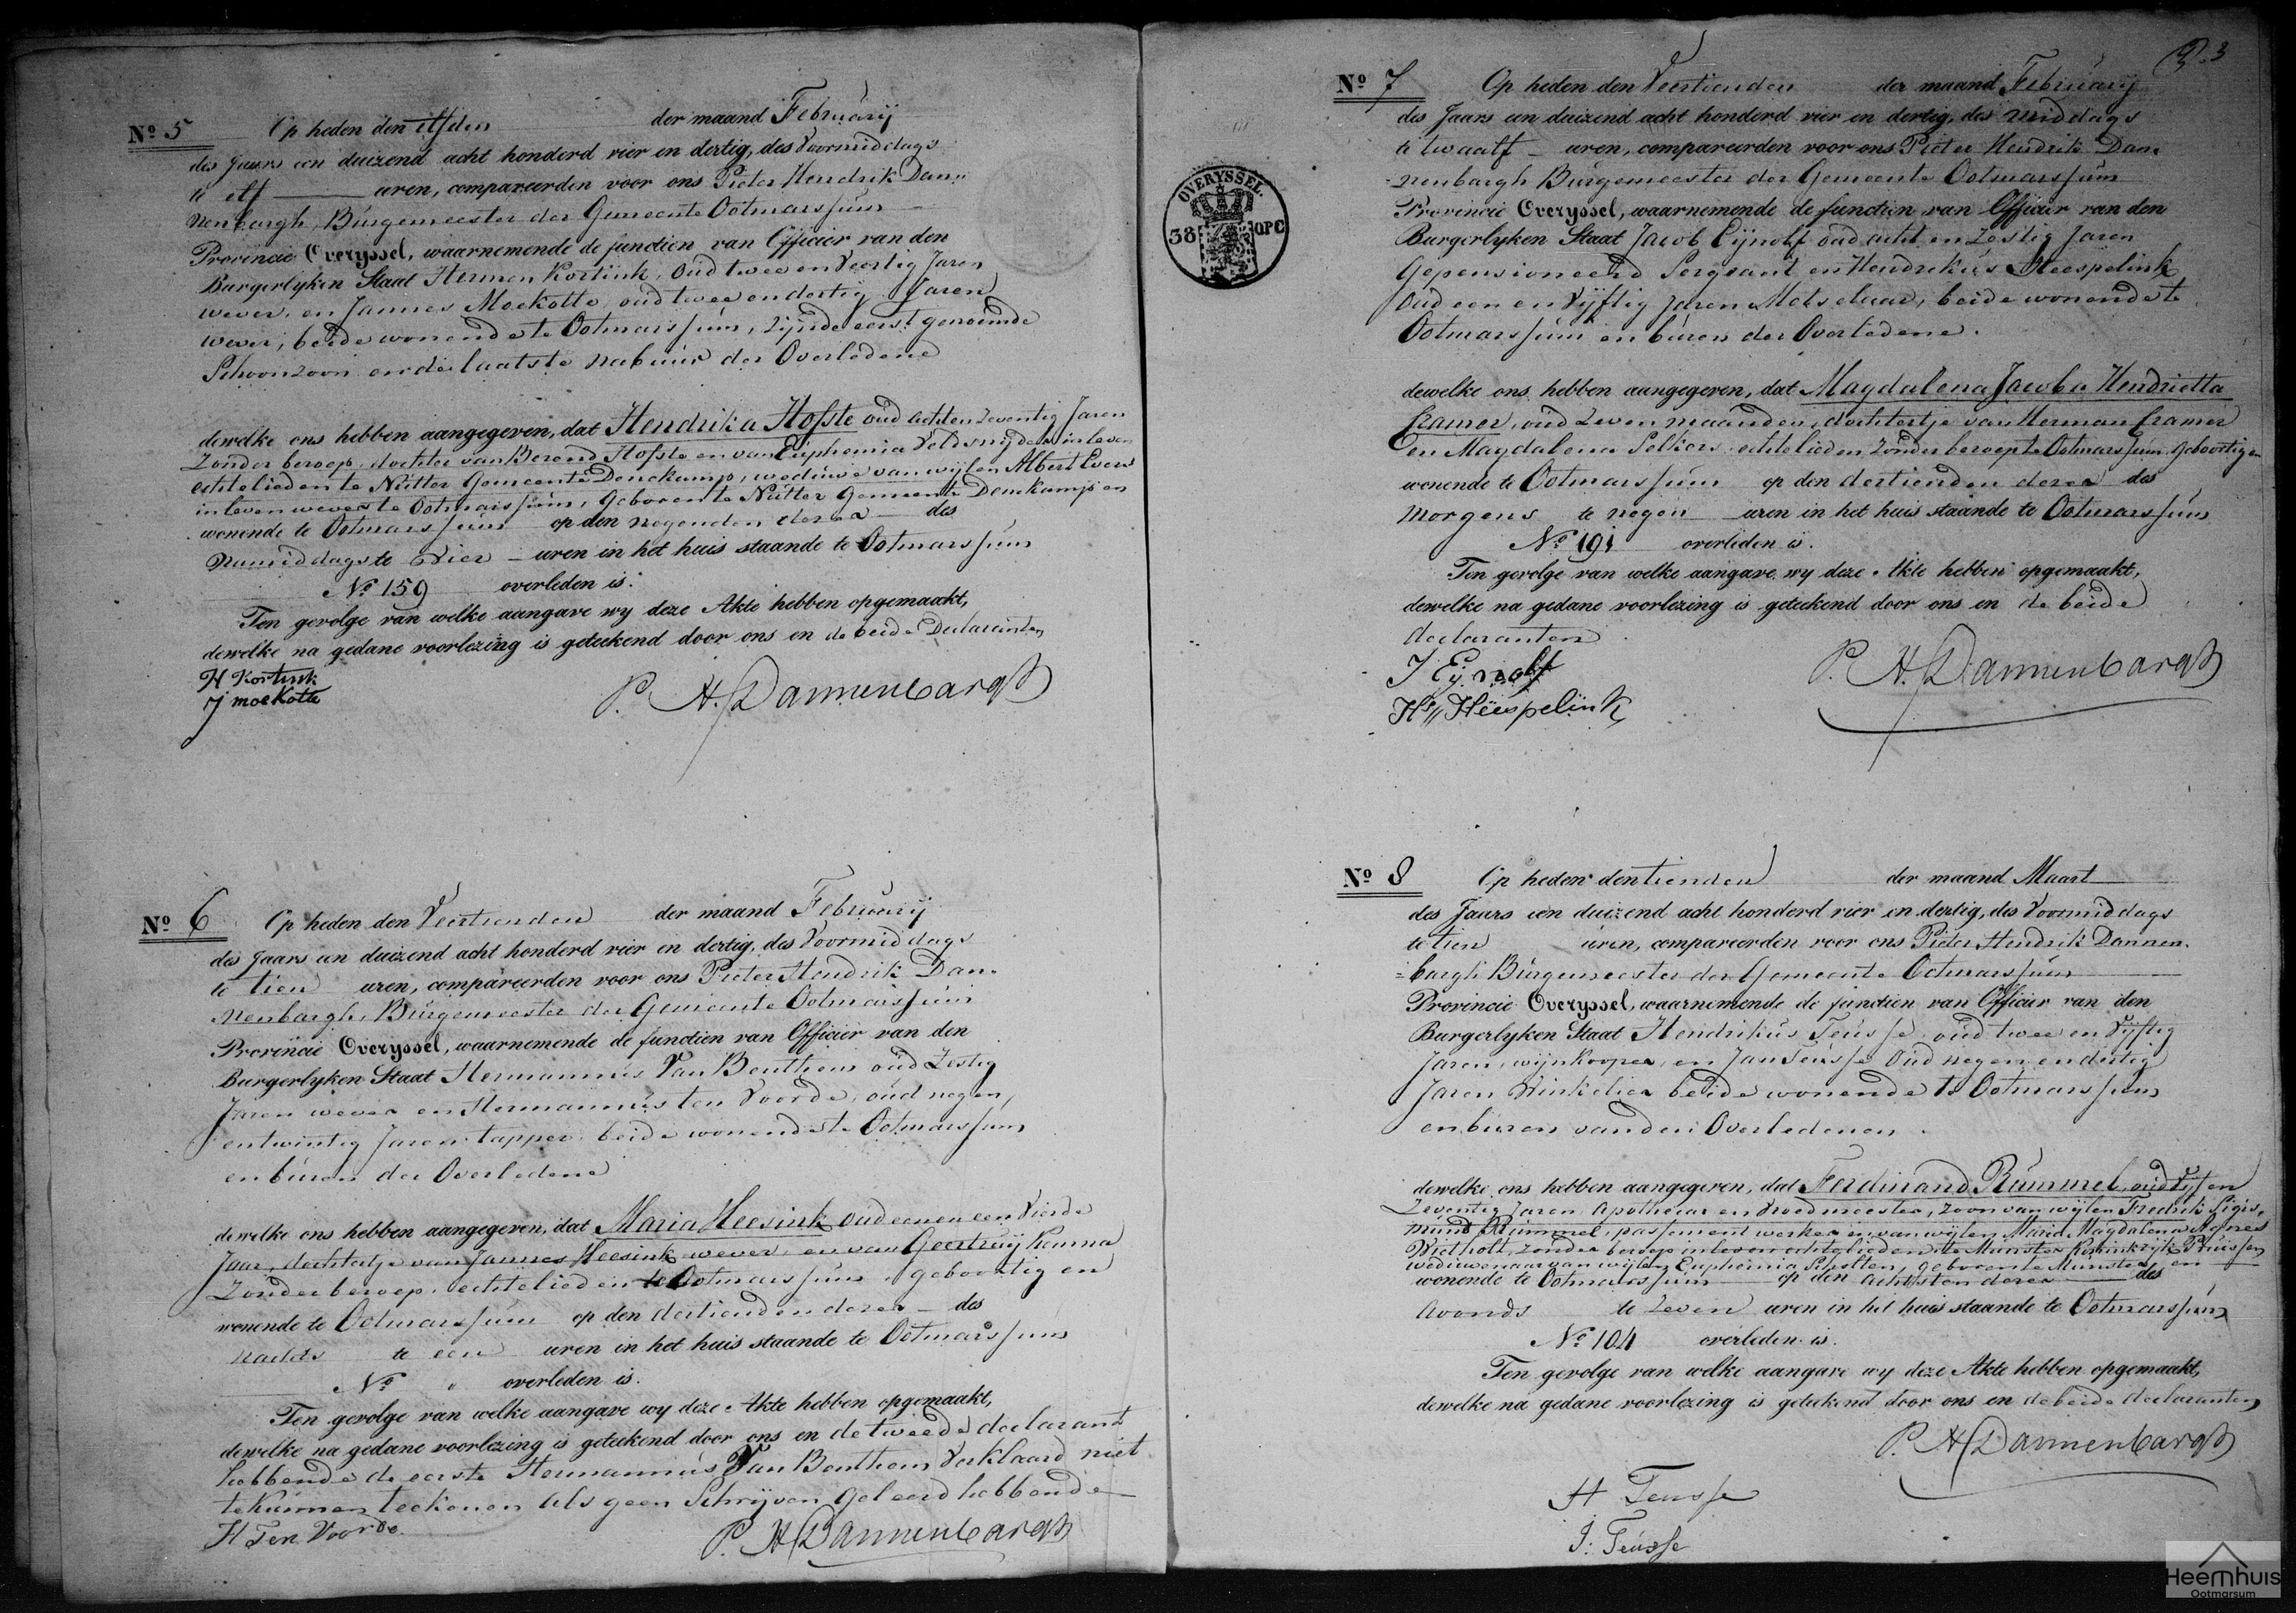 Nº 5 Op heden den elfden der maand Februarij
des Jaars een duizend acht honderd vier en dertig, des Voormiddags
te elf uren, compareerden voor ons Pieter Hendrik Dan-
nenbargh, Burgemeester der Gemeente Ootmarssum
Provincie Overyssel, waarnemende de functien van Officier van den
Burgerlyken Staat Hermen Kortink, oud twee en Veertig Jaren
wever, en Jannes Moekotte, oud twee en dertig Jaren
wever, beide wonende te Ootmarssum, zijnde eerst genoemde
Schoonzoon en de laatste nabuur der Overledene
dewelke ons hebben aangegeven, dat Hendrika Hofste oud acht en Zeventig Jaren
Zonder beroep, dochter van Berend Hofste en van Euphemia Veldsnijder in leven
echtelieden te Nutter Gemeente Denekamp, weduwe van wijlen Albert Evers
in leven wever te Ootmarssum, Geboren te Nutter Gemeente Denekamp en
wonende te Ootmarssum op den negenden dezer des
Namiddags te Vier uren in het huis staande te Ootmarssum
Nº 159 overleden is.
Ten gevolge van welke aangave wy deze Akte hebben opgemaakt,
dewelke na gedane voorlezing is geteekend door ons en de beide Declaranten
H Kortink
J moekotte
P. H. Dannenbargh
Nº 6 Op heden den Veertienden der maand Februarij
des Jaars een duizend acht honderd vier en dertig, des Voormiddags
te tien uren, compareerden voor ons Pieter Hendrik Dan-
nenbargh, Burgemeester der Gemeente Ootmarssum
Provincie Overyssel, waarnemende de functien van Officier van den
Burgerlyken Staat Hermannus Van Benthem oud Zestig
Jaren wever en Hermannus ten Voorde, oud negen
en twintig Jaren tapper, beide wonende te Ootmarssum
en buren der Overledene
dewelke ons hebben aangegeven, dat Maria Heesink oud een en een Vierde
Jaar, dochtertje van Jannes Heesink wever en van Geertruij
Zonder beroep, echtelieden te Ootmarssum, geboortig en
wonende te Ootmarssum op den dertienden dezer des
nachts te een uren in het huis staande te Ootmarssum
Nº " overleden is.
Ten gevolge van welke aangave wy deze Akte hebben opgemaakt,
dewelke na gedane voorlezing is geteekend door ons en de tweede declarant
hebbende de eerste Hermannus Van Benthem Verklaard niet
te kunnen teekenen als geen Schrijven geleerd hebbende
H Ten Voorde
P. H. Dannenbargh
3
OVERYSSEL.
38 OPC
Nº 7 Op heden den Veertienden der maand Februarij
des Jaars een duizend acht honderd vier en dertig, des middags
te twaalf uren, compareerden voor ons Pieter Hendrik Dan-
nenbargh Burgemeester der Gemeente Ootmarssum
Provincie Overyssel, waarnemende de functien van Officier van den
Burgerlyken Staat Jacob Eijnolf oud acht en Zestig Jaren
Gepensioneerd Sergeant en Hendrikus Heespelink
Oud een en Vijftig Jaren Metselaar, beide wonende te
Ootmarssum en buren der Overledene.
dewelke ons hebben aangegeven, dat Magdalena Jacoba Hendrietta
Cramer, oud Zeven maanden, dochtertje van Herman Cramer
en Magdalena Selkers, echtelieden Zonder beroep te Ootmarssum, Geboortig en
wonende te Ootmarssum op den dertienden dezer des
Morgens te negen uren in het huis staande te Ootmarssum
Nº 191 overleden is.
Ten gevolge van welke aangave wy deze Akte hebben opgemaakt,
dewelke na gedane voorlezing is geteekend door ons en de beide
declaranten
J Eijnolf
Hs Heespelink
P. H. Dannenbargh
Nº 8 Op heden den tienden der maand Maart
des Jaars een duizend acht honderd vier en dertig, des Voormiddags
te tien uren, compareerden voor ons Pieter Hendrik Dannen-
bargh Burgemeester der Gemeente Ootmarssum
Provincie Overyssel, waarnemende de functien van Officier van den
Burgerlyken Staat Hendrikus Teusse, oud twee en Vijftig
Jaren, wijnkooper, en Jan Teusse Oud negen en dertig
Jaren Winkelier beide wonende te Ootmarssum
en buren van den Overledenen.
dewelke ons hebben aangegeven, dat Ferdinand Rummel, oud Vijf en
Zeventig Jaren Apothecar en Vroedmeester, Zoon van wijlen Fredrik Sigis-
mund Rummel, passement werker en van wijlen Maria Magdalena Agnes
Wietholt, Zonder beroep in leven echtelieden te Munster Koninkrijk Pruissen
weduwenaar van wijlen Euphemia Scholten, geboren te Munster, en
wonende te Ootmarssum op den achtsten dezer des
Avonds te Zeven uren in het huis staande te Ootmarssum
Nº 104 overleden is.
Ten gevolge van welke aangave wy deze Akte hebben opgemaakt,
dewelke na gedane voorlezing is geteekend door ons en de beide declaranten
P. H. Dannenbargh
H Teusse
J: Teusse
Heemhuis
Ootmarsum